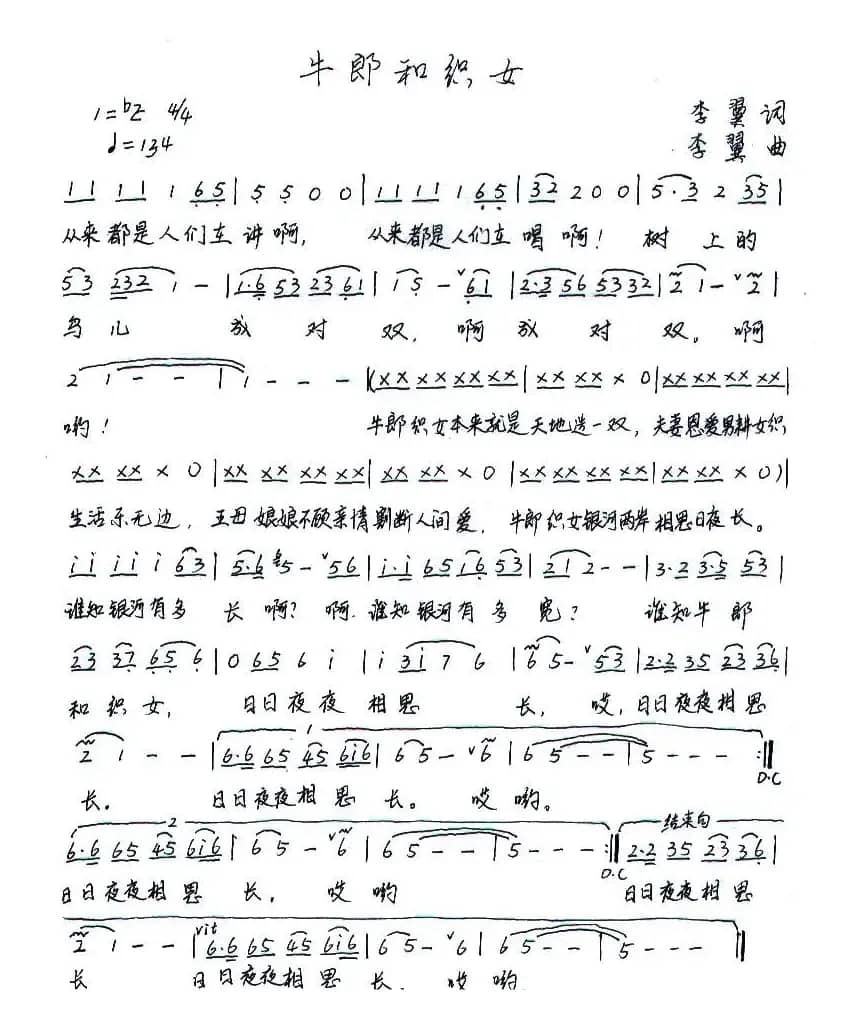 牛郎和织女
1=♭Z 4/4
李翼词
♩=134
李翼曲
11 11 1 65 | 5 5 0 0 | 11 11 1 65 | 32 2 0 0 | 5·3 2 35 |
从来都是人们在讲啊, 从来都是人们在唱啊! 树上的
53 232 1 - | 1·6 53 23 61 | 1 5 - ᵛ61 | 2·3 56 53 32 | 2 1 - ᵛ2 |
鸟儿 成对双, 啊成对双。啊
2 1 - - | 1 - - - | (xx xx xx xx | xx xx x 0 | xx xx xx xx |
哟! 牛郎织女本来就是天地造一双, 夫妻恩爱男耕女织
xx xx x 0 | xx xx xx xx | xx xx x 0 | xx xx xx xx | xx xx x 0) |
生活乐无边, 王母娘娘不顾亲情割断人间爱, 牛郎织女银河两岸相思日夜长。
ii ii i 63 | 5·6 5 - ᵛ56 | i·i 65 i6 53 | 2 1 2 - - | 3·2 3·5 53 |
谁知银河有多长啊? 啊.谁知银河有多宽? 谁知牛郎
23 37 65 6 | 0 65 6 i | i 3i 7 6 | 6 5 - ᵛ53 | 2·2 35 23 36 |
和织女, 日日夜夜相思长, 哎,日日夜夜相思
1
2 1 - - | 6·6 65 45 6i6 | 6 5 - ᵛ6 | 6 5 - - | 5 - - - :‖
D.C
长。 日日夜夜相思长。哎哟。
2 结束句
6·6 65 45 6i6 | 6 5 - ᵛ6 | 6 5 - - | 5 - - - :‖ 2·2 35 23 36 |
D.C
日日夜夜相思长, 哎哟 日日夜夜相思
vit
2 1 - - | 6·6 65 45 6i6 | 6 5 - ᵛ6 | 6 5 - - | 5 - - - ‖
长 日日夜夜相思长. 哎哟.